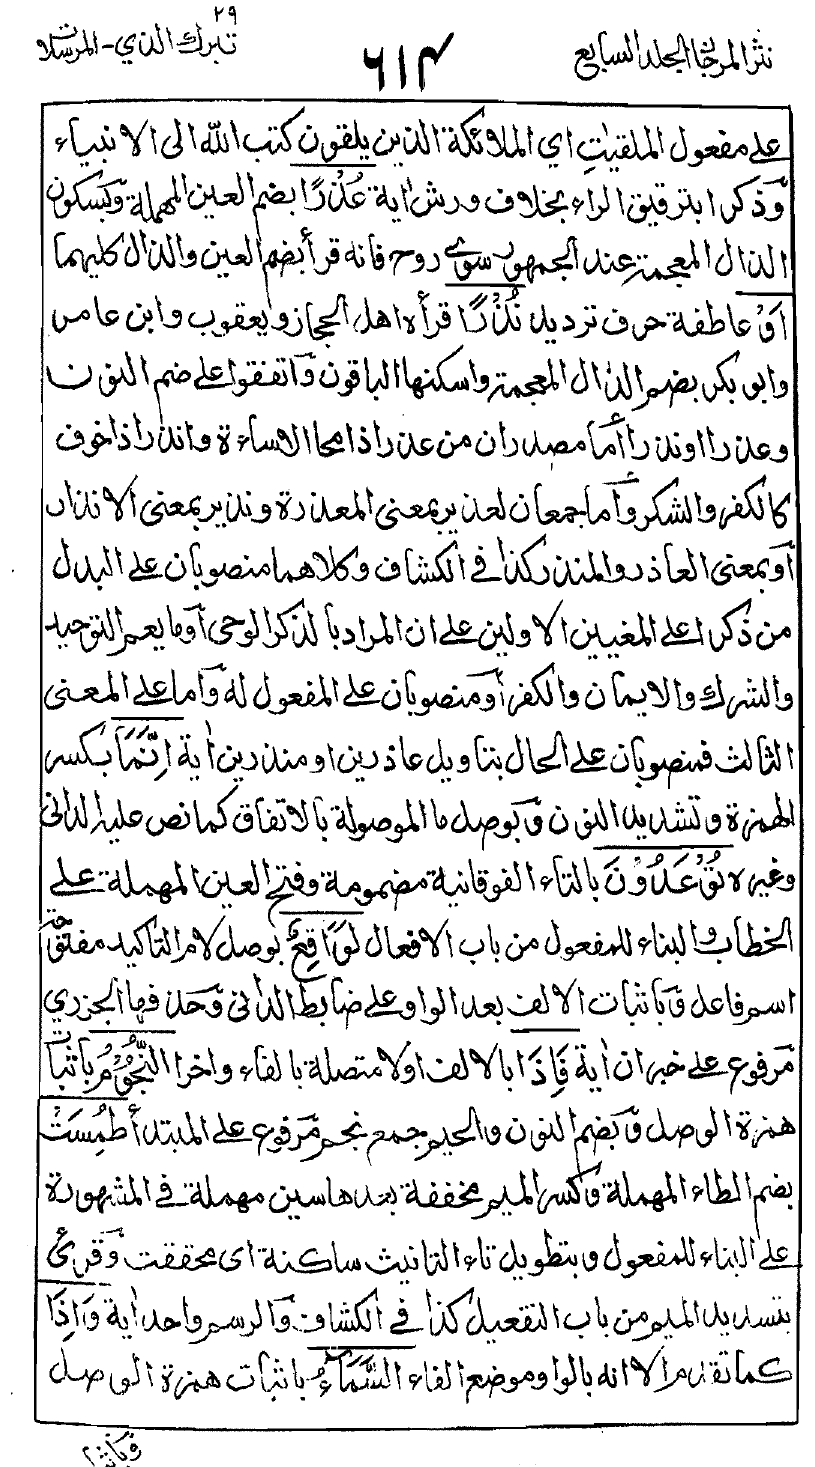 نثر المرجان الجلد السابع
٦١٤
٢٩
تبرك الذي - المرسلات
على مفعول الملقيت اي الملائكة الذين يلقون كتب الله الى الانبياء
وَذكرا بترقيق الراء بخلاف ورش اية عُذْرًا بضم العين المهملة وَبسكون
الذال المعجمة عند الجمهور سوى روح فانه قرأ بضم العين والذال كليهما
اَوْ عاطفة حرف ترديد نُذْرًا قرأه اهل الحجاز ويعقوب وابن عامر
وابو بكر بضم الذال المعجمة واسكنها الباقون وَاتفقوا على ضم النون
وعذرا او نذرا أما مصدران من عذر اذا محا الاساءة وانذر اذا خوف
كالكفر والشكر وأما جمعان لعذير بمعنى المعذرة ونذير بمعنى الانذار
أو بمعنى العاذر والمنذر كذا في الكشاف وكلاهما منصوبان على البدل
من ذكرا على المغيين الاولين على ان المراد بالذكر الوحي أو ما يعم التوحيد
والشرك والايمان والكفر أو منصوبان على المفعول له وَاما على المعنى
الثالث فمنصوبان على الحال بتاويل عاذرين او منذرين اية اِنَّمَا بكسر
الهمزة وتشديد النون وَبوصل ما الموصولة بالاتفاق كما نص عليه الداني
وغيره تُوْعَدُوْنَ بالتاء الفوقانية مضمومة وفتح العين المهملة على
الخطاب والبناء للمفعول من باب الافعال لَوَاقِعٌ بوصل لام التاكيد مفتوحة
اسم فاعل وَباثبات الالف بعد الواو على ضابط الداني وَحذفها الجزري
مَرفوع على خبر ان اية فَاِذَا بالالف اولا متصلة بالفاء واخرا النُّجُوْمُ باثبات
همزة الوصل وَبضم النون والجيم جمع نجم مَرفوع على المبتدأ طُمِسَتْ
بضم الطاء المهملة وَكسر الميم مخففة بعدها سين مهملة في المشهورة
على البناء للمفعول وبتطويل تاء التانيث ساكنة اى محققت وَقرئ
بتسديد الميم من باب التفعيل كذا في الكشاف وَالرسم واحد اية وَاِذَا
كما تقدم الا انه بالواو موضع الفاء السَّمَاءُ باثبات همزة الوصل